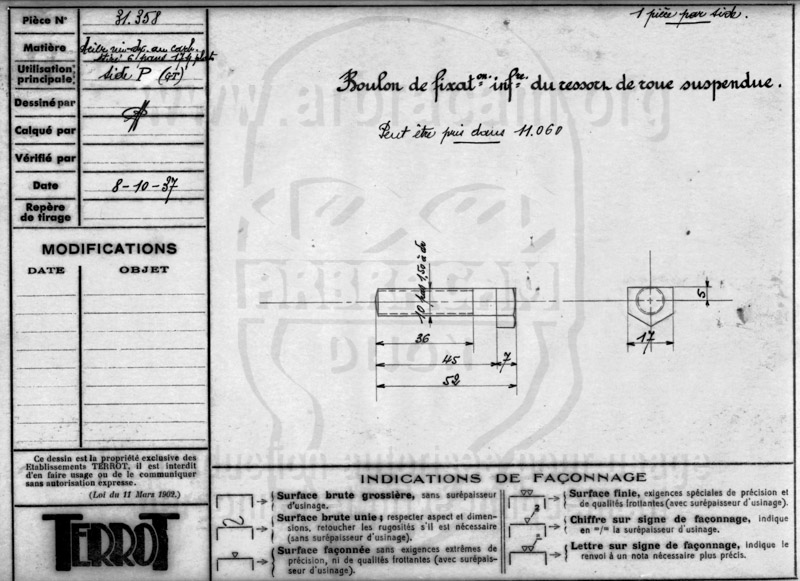 Pièce N° 31.358
Matière Acier mi-dr. au carb.
étiré 6 pans 17 s/ plats
Utilisation principale: side P (GT)
Dessiné par
Calqué par
Vérifié par
Date 8-10-37
Repère de tirage
MODIFICATIONS
DATE OBJET
1 pièce par side.
Boulon de fixat.on inf.re du ressort de roue suspendue.
Peut être pris dans 11.060
10 pas 1,50 à dr
36
45
7
52
5
17
www.arbracam.org
ARBRACAM
DIJON
Ce dessin est la propriété exclusive des
Etablissements TERROT, il est interdit
d'en faire usage ou de le communiquer
sans autorisation expresse.
(Loi du 11 Mars 1902.)
TERROT
INDICATIONS DE FAÇONNAGE
Surface brute grossière, sans surépaisseur
d'usinage.
Surface brute unie; respecter aspect et dimen-
sions, retoucher les rugosités s'il est nécessaire
(sans surépaisseur d'usinage).
Surface façonnée sans exigences extrêmes de
précision, ni de qualités frottantes (avec surépais-
seur d'usinage).
Surface finie, exigences spéciales de précision et
de qualités frottantes (avec surépaisseur d'usinage).
Chiffre sur signe de façonnage, indique
en =/= la surépaisseur d'usinage.
Lettre sur signe de façonnage, indique le
renvoi à un nota nécessaire plus précis.